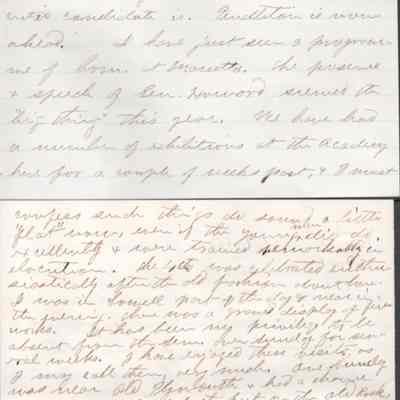 candidate is. Pendleton is now
ahead. I have just seen a program-
me of from at Marietta. The presence
& speech of Gen. Howard seemed the
"big thing" this year. We have had
a number of exhibitions at the Academy
here for a couple of weeks past, & I must
confess such things do sound a little
"flat" now, even if the young men did do
excellently & were trained remarkably in
elocution. The 4th was celebrated enthu-
siastically after the old fashion about here.
I was in Lowell part of the day & near in
the evening. There was a grand display of fire
works. It has been my privilege to be
absent from the Sem. over Sunday for sev-
eral weeks. I have enjoyed these visits, as
I may call them, very much. One Sunday
was near Old Plymouth & had a chance
foot on the old Rock,